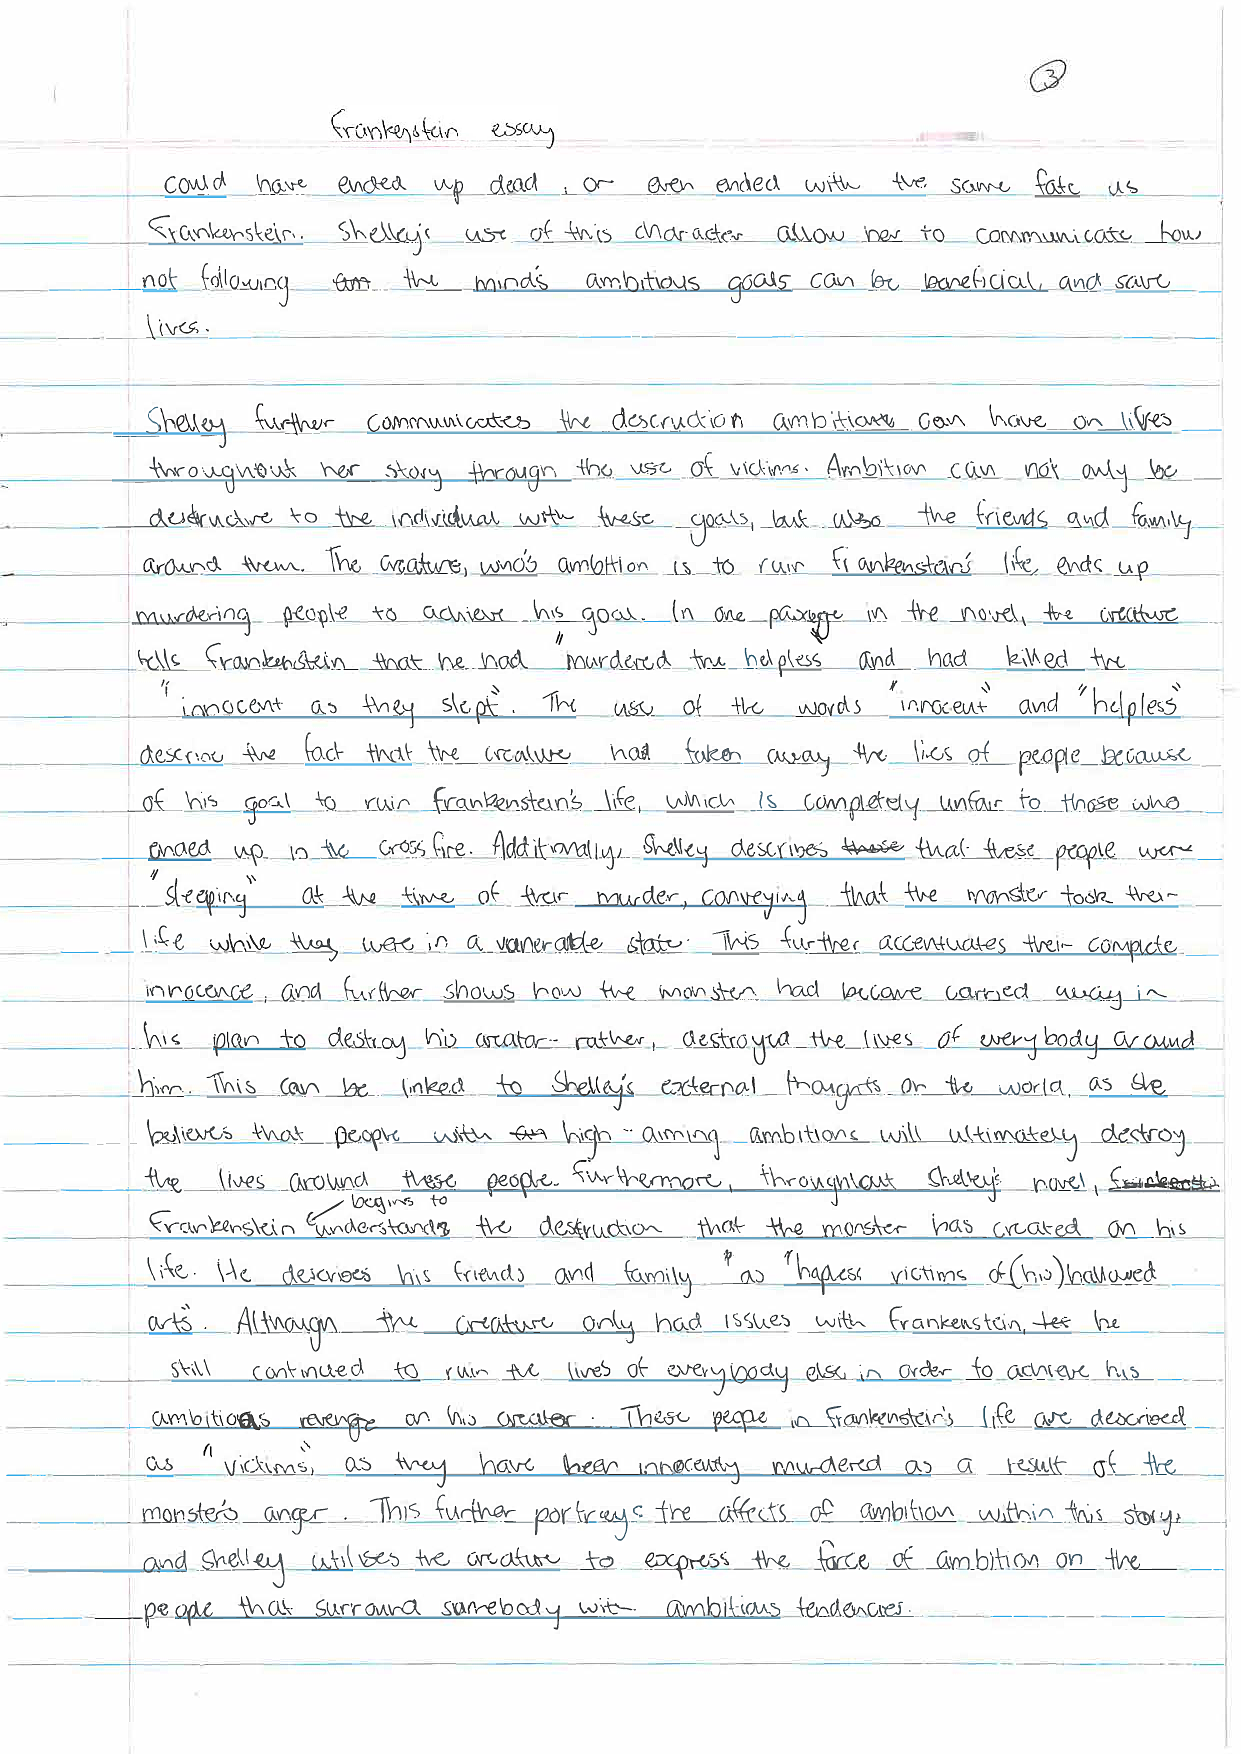 3
Frankenstein essay
could have ended up dead, or even ended with the same fate as
Frankenstein. Shelley's use of this character allow her to communicate how
not following the mind's ambitious goals can be beneficial, and save
lives.
Shelley further communicates the descruction ambitions can have on lives
throughout her story through the use of victims. Ambition can not only be
destructive to the individual with these goals, but also the friends and family
around them. The creature, who's ambition is to ruin Frankenstein's life, ends up
murdering people to achieve his goal. In one passage in the novel, the creature
tells Frankenstein that he had "murdered the helpless" and had killed the
"innocent as they slept". The use of the words "innocent" and "helpless"
describe the fact that the creature had taken away the lies of people because
of his goal to ruin Frankenstein's life, which is completely unfair to those who
ended up in the crossfire. Additionally, Shelley describes these that these people were
"sleeping" at the time of their murder, conveying that the monster took their
life while they were in a vanerable state. This further accentuates their complete
innocence, and further shows how the monster had become carried away in
his plan to destroy his creator - rather, destroyed the lives of everybody around
him. This can be linked to Shelley's external thoughts on the world, as she
believes that people with high-aiming ambitions will ultimately destroy
the lives around these people. Furthermore, throughout Shelley's novel,
begins to
Frankenstein understands the destruction that the monster has created on his
life. He describes his friends and family " as "hapless victims of (his) hallowed
arts". Although the creature only had issues with Frankenstein, he
still continued to ruin the lives of everybody else in order to achieve his
ambitious revenge on his creator. These people in Frankenstein's life are described
as "victims", as they have been innocently murdered as a result of the
monster's anger. This further portrays the affects of ambition within this story,
and Shelley utilises the creature to express the force of ambition on the
people that surround somebody with ambitious tendencies.